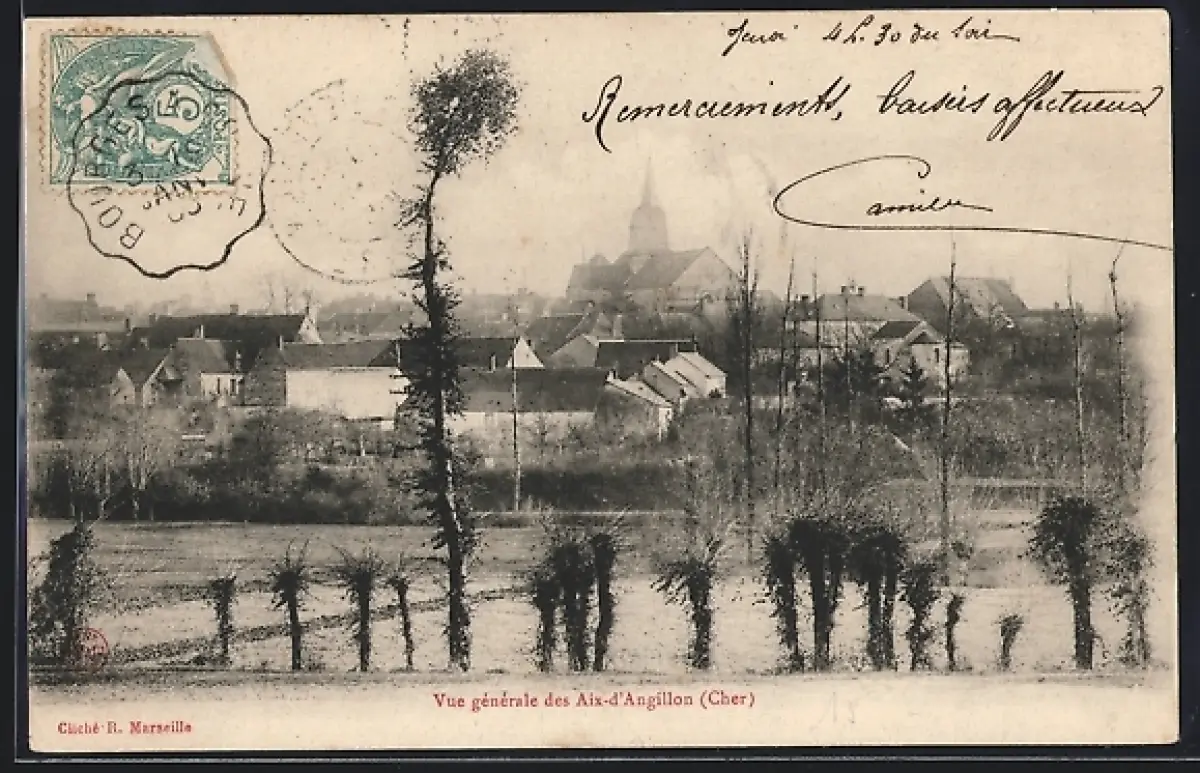 Jeudi 4h.30 du soir
Remerciements, baisers affectueux
Camille
5
BOURGES
3
JANV
05
Vue générale des Aix-d'Angillon (Cher)
Cliché R. Marseille